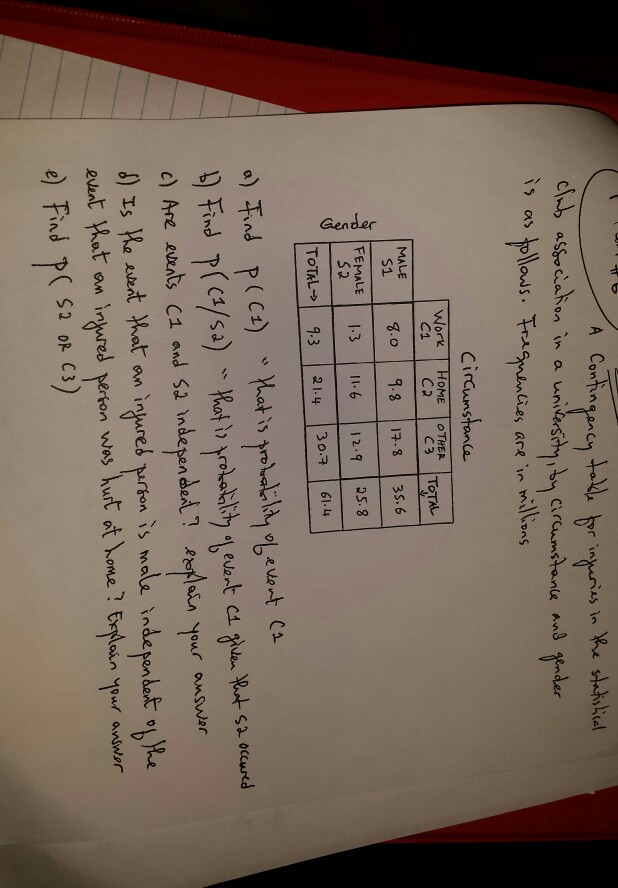 A Contingency table for injuries in the statistical
club association in a university, by circumstance and gender
is as follows. Frequencies are in millions
Circumstance
Gender
WORK C1 HOME C2 OTHER C3 TOTAL ↓
MALE S1 8.0 9.8 17.8 35.6
FEMALE S2 1.3 11.6 12.9 25.8
TOTAL→ 9.3 21.4 30.7 61.4
a) Find P(C1) "that is probability of event C1
b) Find P(C1/S2) "that is probability of event C1 given that S2 occured
c) Are events C1 and S2 independent? explain your answer
d) Is the event that an injured person is male independent of the
event that an injured person was hurt at home? Explain your answer
e) Find P(S2 OR C3)